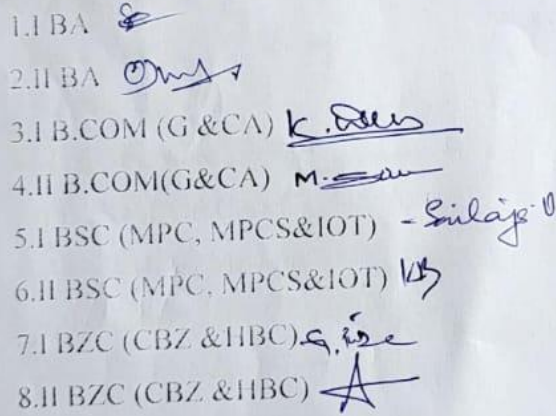 1.I BA
2.II BA
3.I B.COM (G &CA) K.
4.II B.COM(G&CA) M.
5.I BSC (MPC, MPCS&IOT)
6.II BSC (MPC, MPCS&IOT)
7.I BZC (CBZ &HBC) G.
8.II BZC (CBZ &HBC)